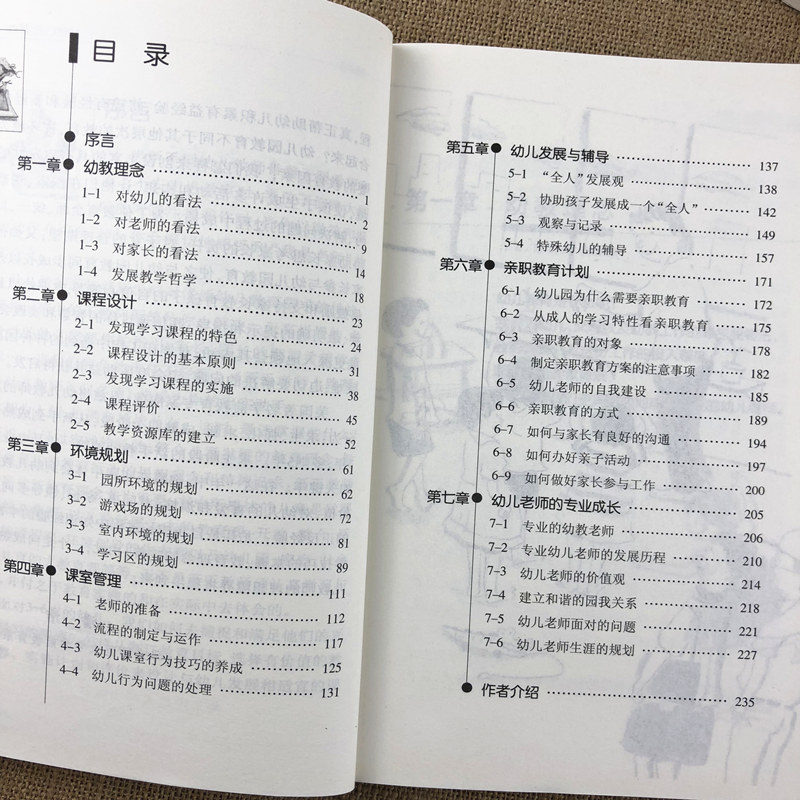 目 录
序言
第一章 幼教理念 1
1-1 对幼儿的看法 2
1-2 对老师的看法 9
1-3 对家长的看法 14
1-4 发展教学哲学 18
第二章 课程设计 23
2-1 发现学习课程的特色 24
2-2 课程设计的基本原则 31
2-3 发现学习课程的实施 38
2-4 课程评价 45
2-5 教学资源库的建立 52
第三章 环境规划 61
3-1 园所环境的规划 62
3-2 游戏场的规划 72
3-3 室内环境的规划 81
3-4 学习区的规划 89
第四章 课室管理 111
4-1 老师的准备 112
4-2 流程的制定与运作 117
4-3 幼儿课室行为技巧的养成 125
4-4 幼儿行为问题的处理 131
第五章 幼儿发展与辅导 137
5-1 “全人”发展观 138
5-2 协助孩子发展成一个“全人” 142
5-3 观察与记录 149
5-4 特殊幼儿的辅导 157
第六章 亲职教育计划 171
6-1 幼儿园为什么需要亲职教育 172
6-2 从成人的学习特性看亲职教育 175
6-3 亲职教育的对象 178
6-4 制定亲职教育方案的注意事项 182
6-5 幼儿老师的自我建设 185
6-6 亲职教育的方式 189
6-7 如何与家长有良好的沟通 194
6-8 如何办好亲子活动 197
6-9 如何做好家长参与工作 200
第七章 幼儿老师的专业成长 205
7-1 专业的幼教老师 206
7-2 专业幼儿老师的发展历程 210
7-3 幼儿老师的价值观 214
7-4 建立和谐的园我关系 218
7-5 幼儿老师面对的问题 221
7-6 幼儿老师生涯的规划 227
作者介绍 235